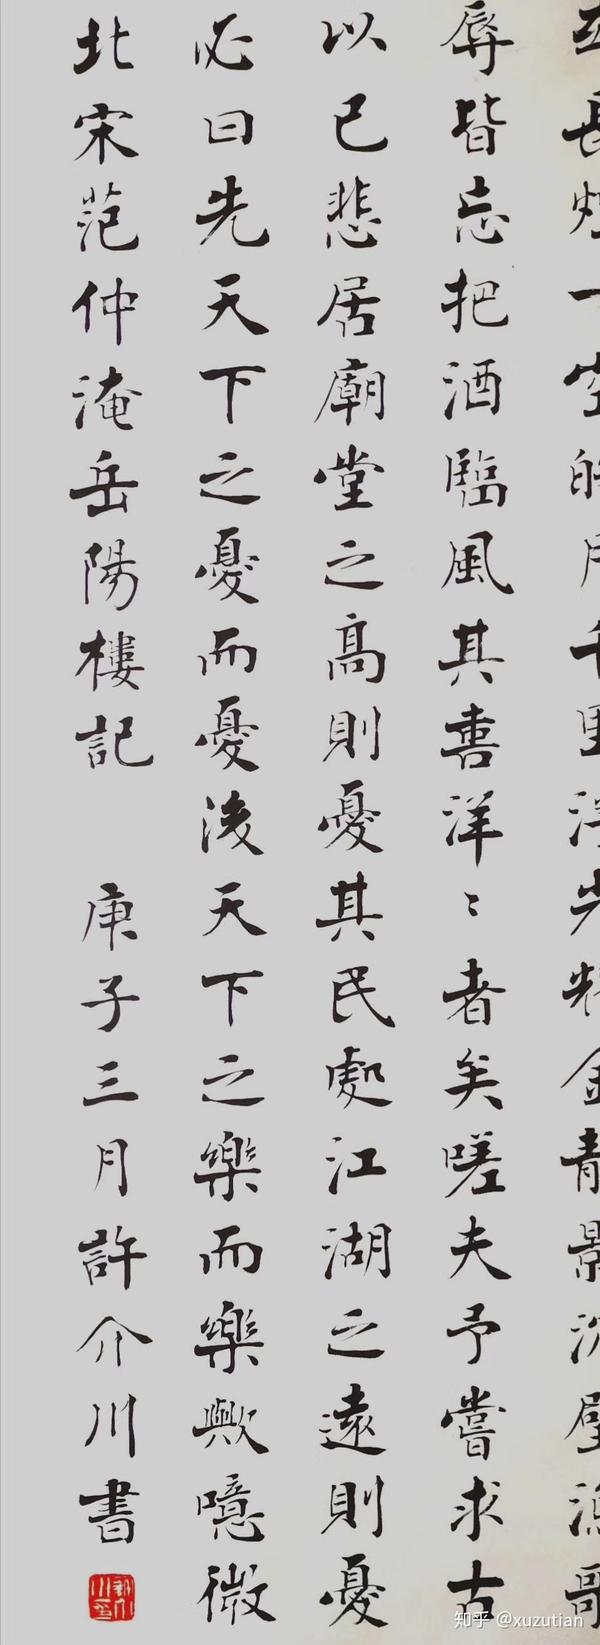 長煙一空皓月千里浮光耀金靜影沉璧漁歌
辱皆忘把酒臨風其喜洋〻者矣嗟夫予嘗求古
以已悲居廟堂之高則憂其民處江湖之遠則憂
必曰先天下之憂而憂後天下之樂而樂歟噫微
北宋范仲淹岳陽樓記 庚子三月許介川書
知乎 @xuzutian